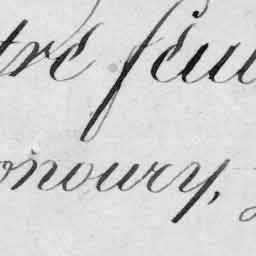 tre seul
onoury,